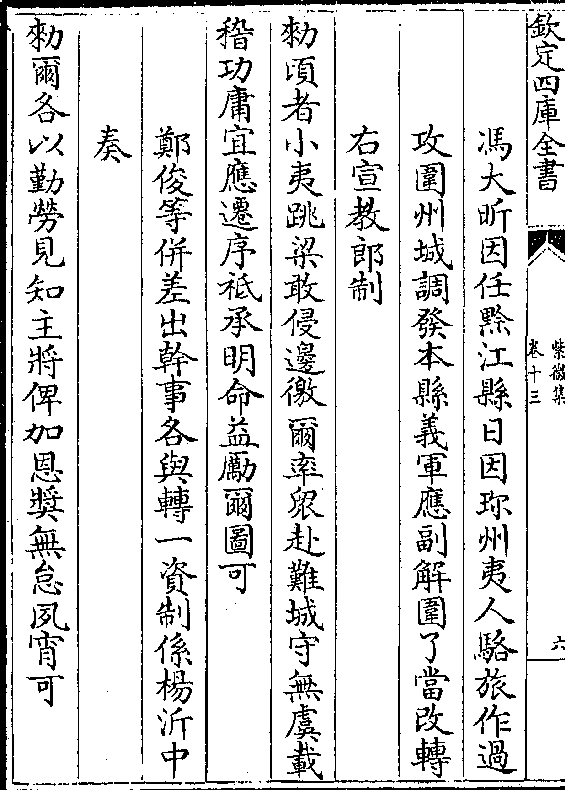 欽定四庫全書
紫微集
卷十三
六
馮大昕因任黔江縣日因珎州夷人駱旅作過
攻圍州城調發本縣義軍應副解圍了當改轉
右宣教郎制
勑頃者小夷跳梁敢侵邊徼爾率衆赴難城守無虞載
稽功庸宜應遷序祗承明命益勵爾圖可
鄭俊等併差出幹事各與轉一資制係楊沂中
奏
勑爾各以勤勞見知主將俾加恩奬無怠夙宵可